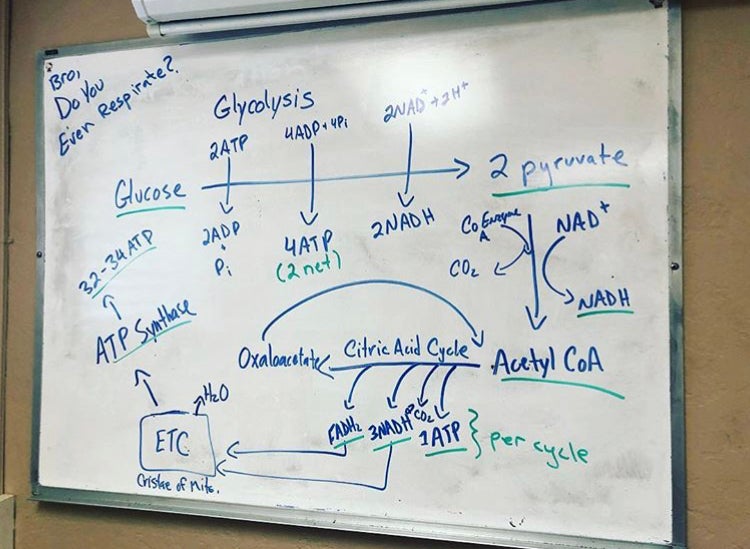 Bro,
Do You
Even Respirate?
Glycolysis
2ATP
4ADP + 4Pi
2NAD⁺ + 2H⁺
Glucose
2 pyruvate
2ADP
+
Pi
4ATP
(2 net)
2NADH
CoEnzyme
A
NAD⁺
CO₂
NADH
32-34ATP
ATP Synthase
Oxaloacetate
Citric Acid Cycle
Acetyl CoA
FADH₂
3NADH
CO₂
1ATP
per cycle
H₂O
ETC
Cristae of Mito.